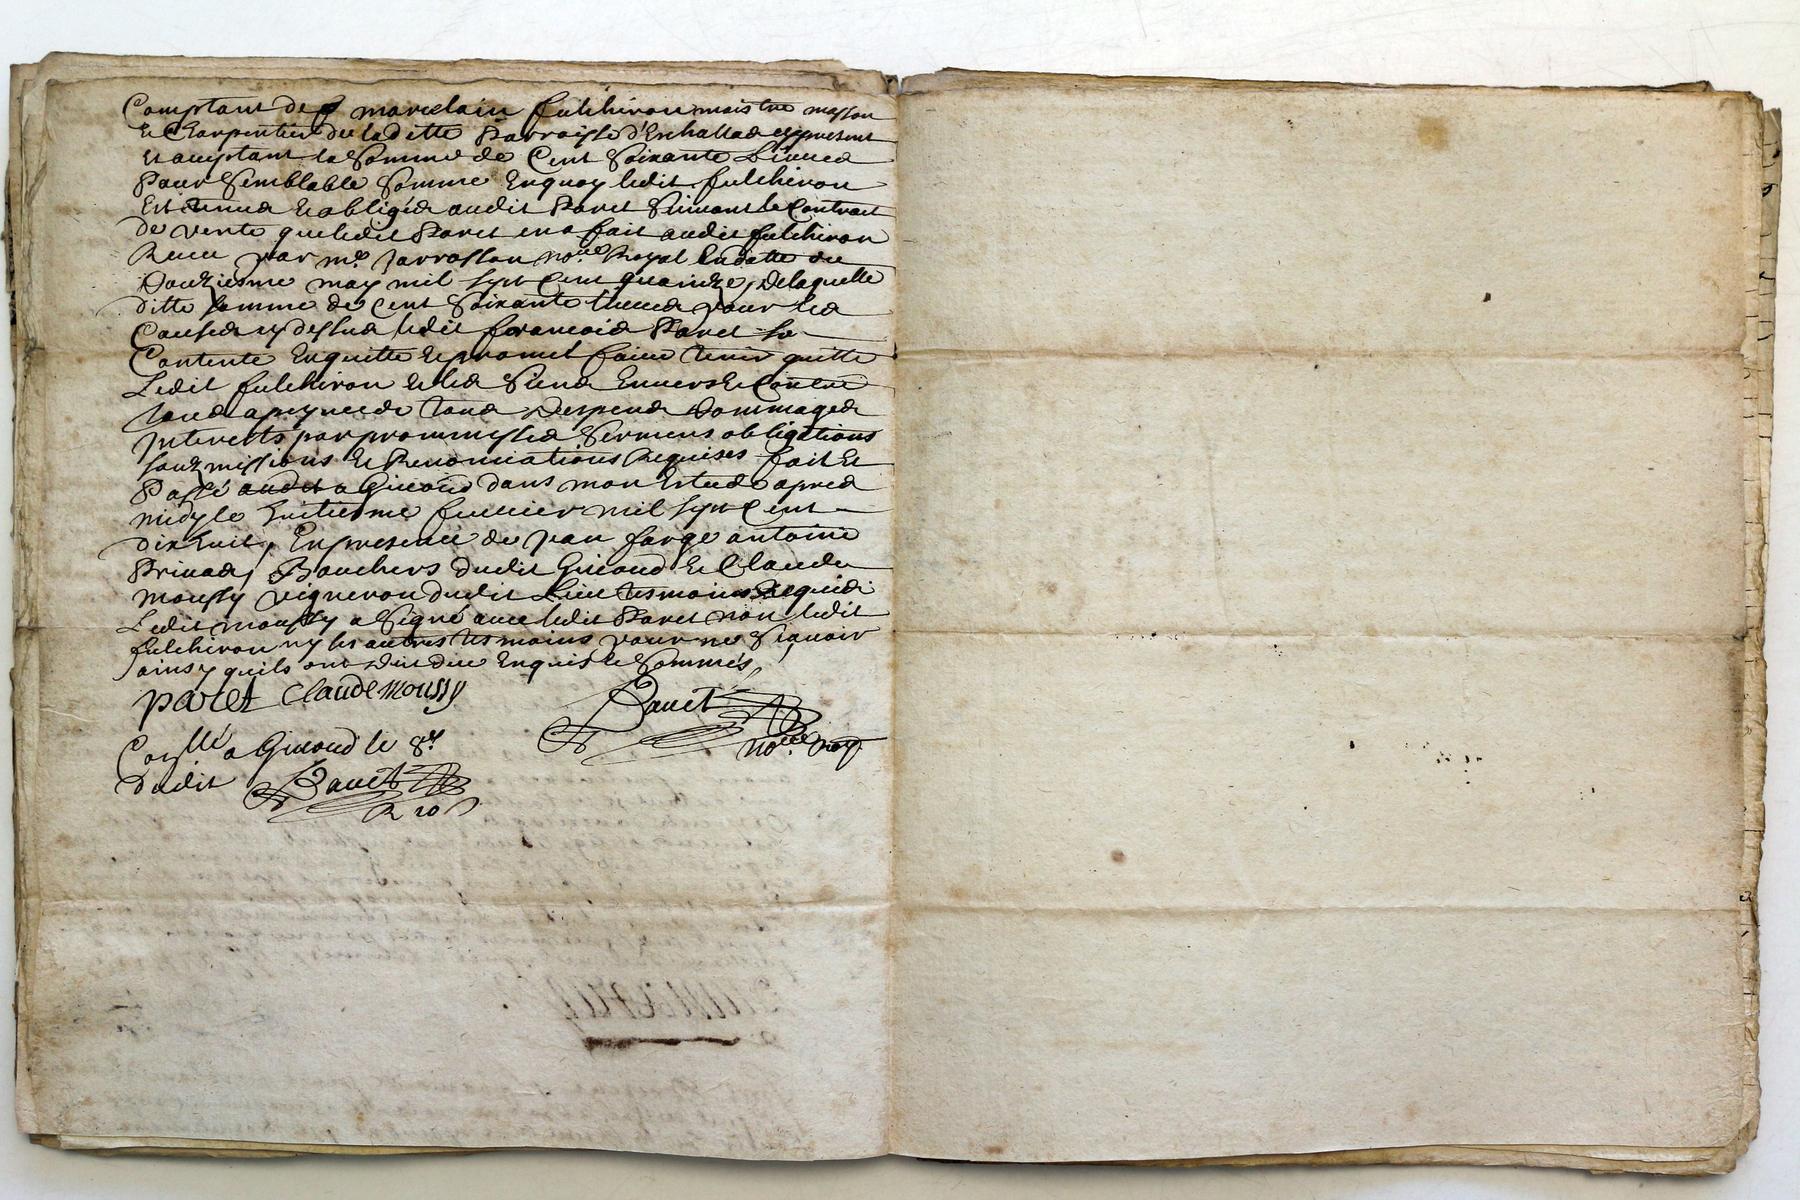 Comptant de marcelain fulchiron maistre masson
Et Charpentier de la ditte Parroisse d'Eschallas cy present
Et acceptant la Somme de Cent Soixante Livres
Pour Semblable Somme Enquoy ledit fulchiron
Est tenus Et obligés audit Paret Suivant le Contract
de vente que ledit Paret en a fait audit fulchiron
Receu par me Jarrosson nore Royal En datte du
Douziesme may mil sept Cent quainze, de laquelle
ditte somme de Cent Soixante livres pour les
Causes cy dessus ledit francois Paret se
Contente Enquitte Et promet faire tenir quitte
Ledit fulchiron Et les Siens Envers Et Contre
tous a peyne de tous Despens Dommages
Interests par prommesses Sermens obligations
soubzmissions Et Renonciations Requises fait Et
Passé audit a Givord dans mon Estude apres
midy le huitiesme fevrier mil sept Cent
dix huit, En presence de Jean farge antoine
Privas, Bouchers dudit Givord Et Claude
moussy vigneron dudit Lieu tesmoins Requis
Ledit moussy a Signé avec ledit Paret non ledit
fulchiron ny les autres tesmoins pour ne Scavoir
ainsy quils ont dit de ce Enquis Et Sommés,
paret Claude moussy
nore roy
a Givord le 8e
dudit
R 10 s